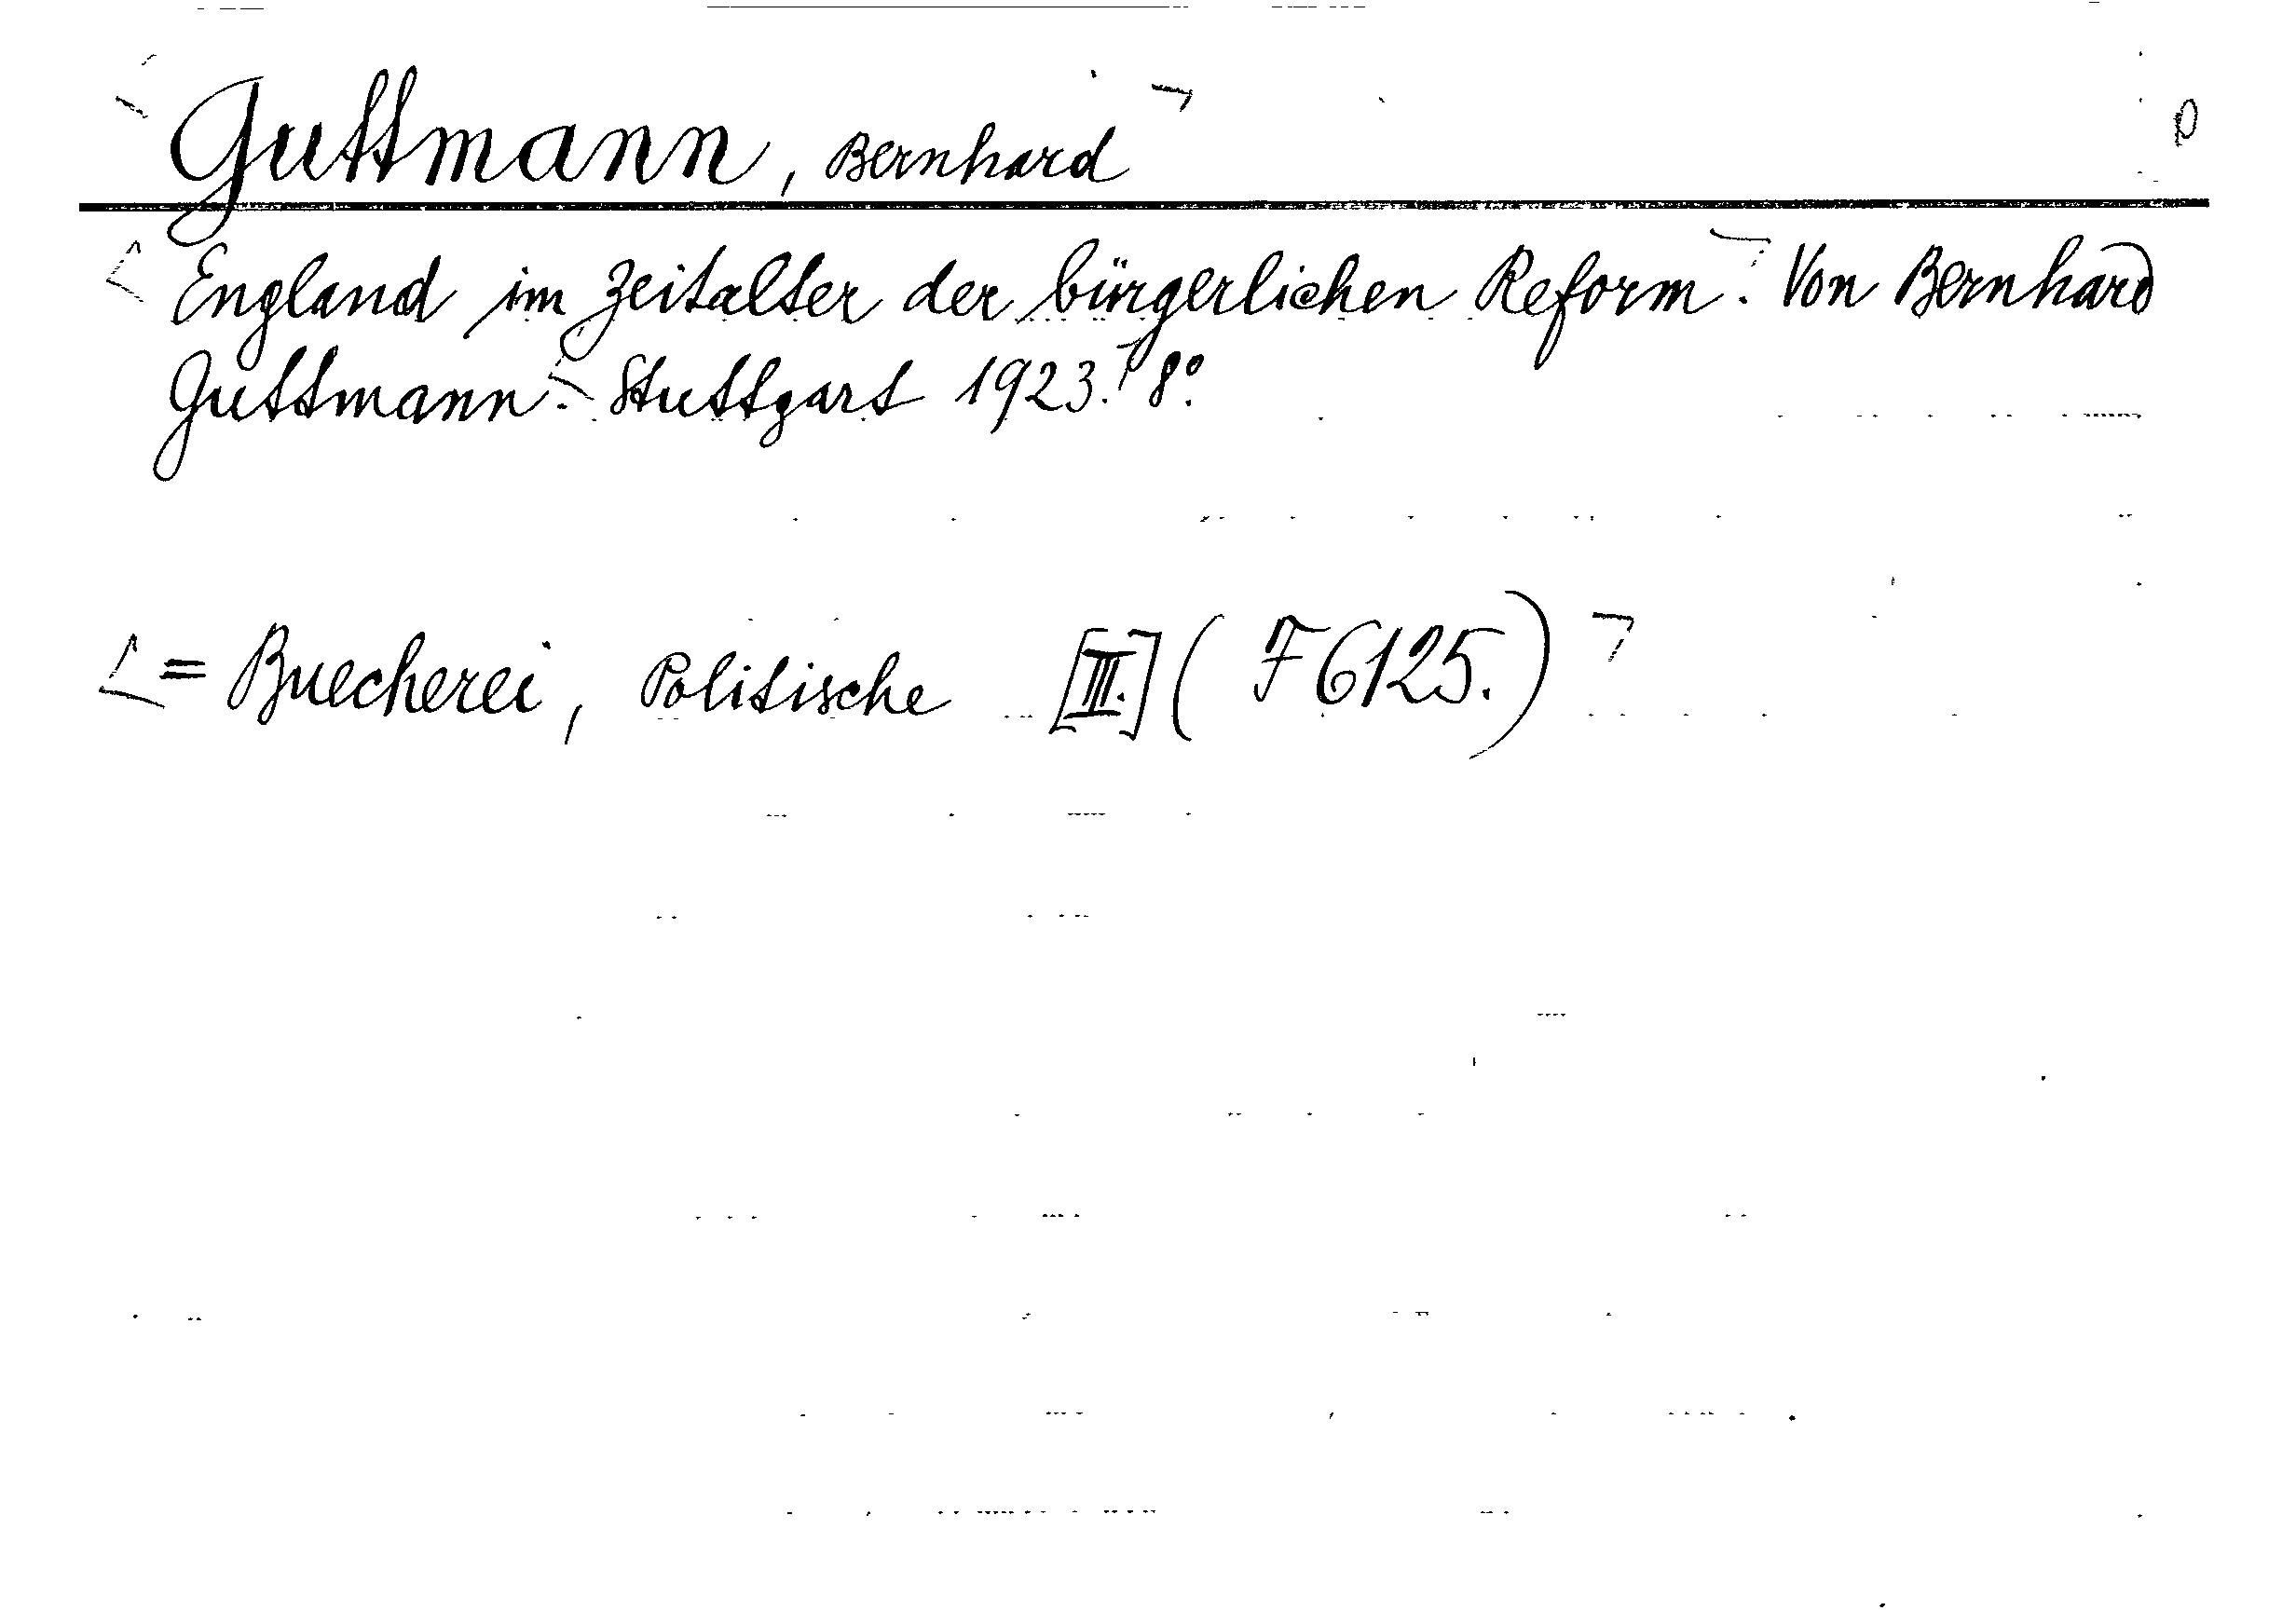 Guttmann, Bernhard
England im Zeitalter der bürgerlichen Reform. Von Bernhard
Guttmann. Stuttgart 1923. 8°.
= Buecherei, Politische [III.] ( F 6125.)